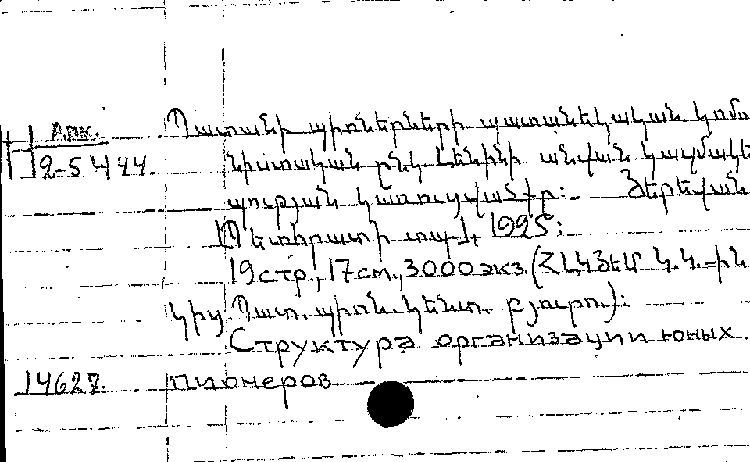 Արк.
2-5444.
Պատանի պիոներների պատանեկական կոմու
նիստական ընկ. Լենինի անվան կազմակե
պության կառուցվածքը։ Յերեվան
[Պետհրատի տպ.], 1925։
19 стр., 17 см., 3000 экз. (ՀԼԿՅԵՄ Կ.Կ.–ին
կից Պատ. պիոն. կենտ. բյուրո.)։
Структура организации юных
14627. пионеров